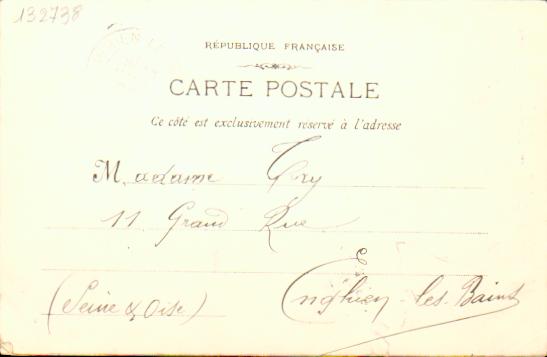 132738
RÉPUBLIQUE FRANÇAISE
CARTE POSTALE
Ce côté est exclusivement reservé à l'adresse
Madame
11 Grand Rue
Enghien-les-Bains
(Seine & Oise)